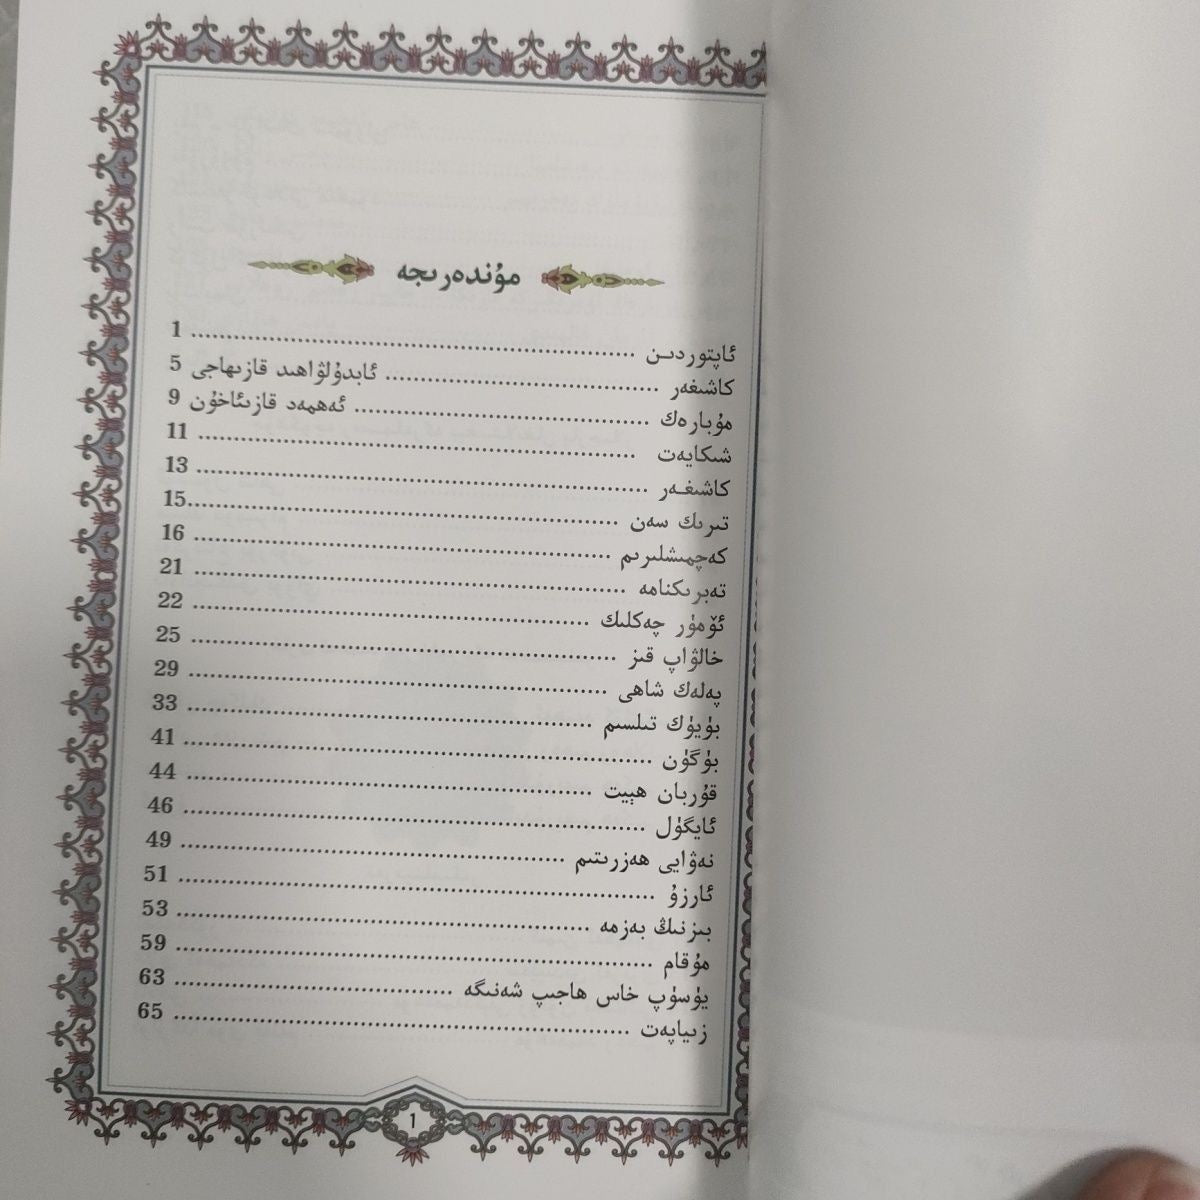 مۇندەرىجە
ئاپتوردىن ........ 1
كاشىغەر ........ ئابدۇلۋاھىد قازىھاجى 5
مۇبارەك ........ ئەھمەد قازىئاخۇن 9
شىكايەت ........ 11
كاشىغەر ........ 13
تىرىك سەن ........ 15
كەچمىشلىرىم ........ 16
تەبرىكنامە ........ 21
ئۆمۈر چەكلىك ........ 22
خالۋاپ قىز ........ 25
پەلەك شاھى ........ 29
بۈيۈك تىلسىم ........ 33
بۈگۈن ........ 41
قۇربان ھېيت ........ 44
ئايگۈل ........ 46
نەۋايى ھەزرىتىم ........ 49
ئارزۇ ........ 51
بىزنىڭ بەزمە ........ 53
مۇقام ........ 59
يۈسۈپ خاس ھاجىپ شەنىگە ........ 63
زىياپەت ........ 65
1